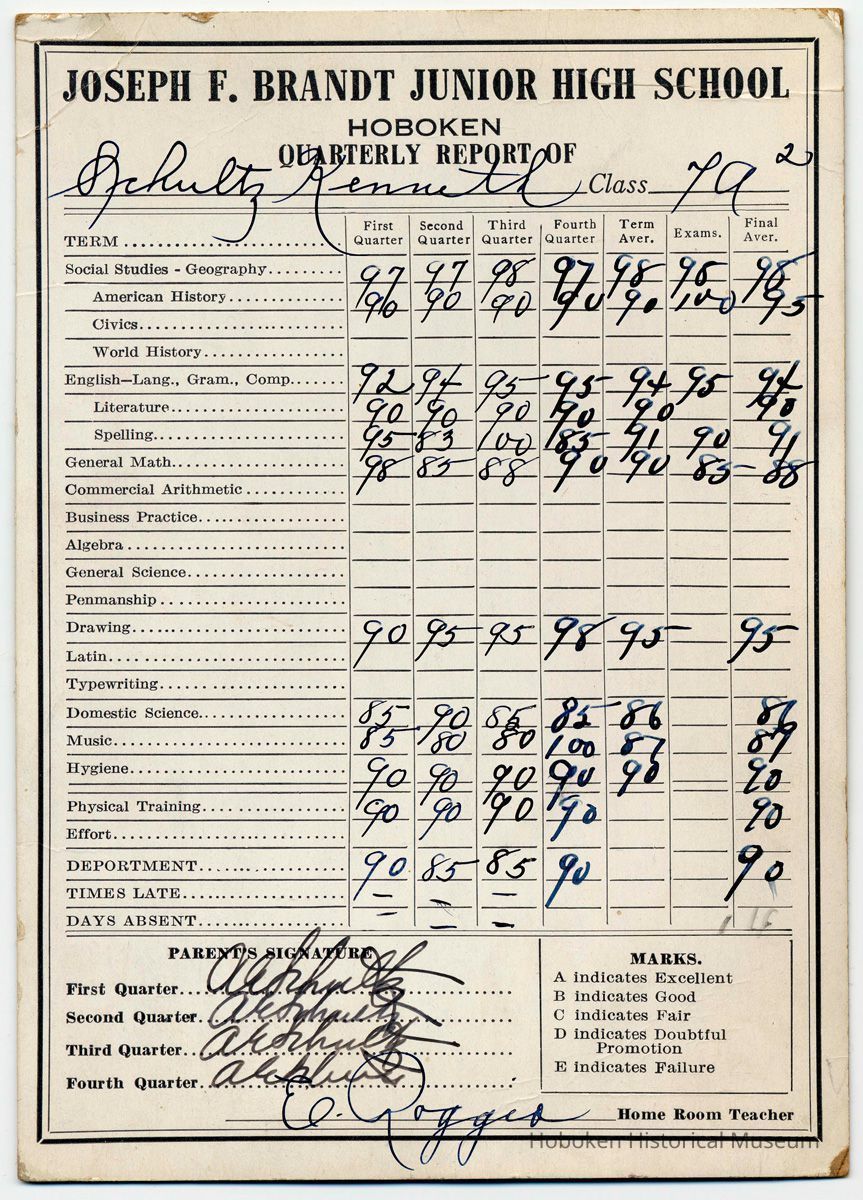 JOSEPH F. BRANDT JUNIOR HIGH SCHOOL
HOBOKEN
QUARTERLY REPORT OF
Schultz Kenneth Class 7A 2
TERM First Quarter Second Quarter Third Quarter Fourth Quarter Term Aver. Exams. Final Aver.
Social Studies - Geography 97 97 98 97 98 98 98
American History 96 90 90 90 90 100 95
Civics
World History
English—Lang., Gram., Comp. 92 94 95 95 94 95 94
Literature 90 90 90 90 90 90
Spelling 95 83 100 85 91 90 91
General Math. 98 85 88 90 90 85 88
Commercial Arithmetic
Business Practice
Algebra
General Science
Penmanship
Drawing 90 95 95 98 95 95
Latin
Typewriting
Domestic Science 85 90 85 85 86 86
Music 85 80 80 100 87 87
Hygiene 90 90 90 90 90 90
Physical Training 90 90 90 90 90
Effort
DEPORTMENT 90 85 85 90 90
TIMES LATE — — —
DAYS ABSENT — — —
PARENT'S SIGNATURE
First Quarter AESchultz
Second Quarter AESchultz
Third Quarter AESchultz
Fourth Quarter AESchultz
MARKS.
A indicates Excellent
B indicates Good
C indicates Fair
D indicates Doubtful
Promotion
E indicates Failure
E. Home Room Teacher
Hoboken Historical Museum